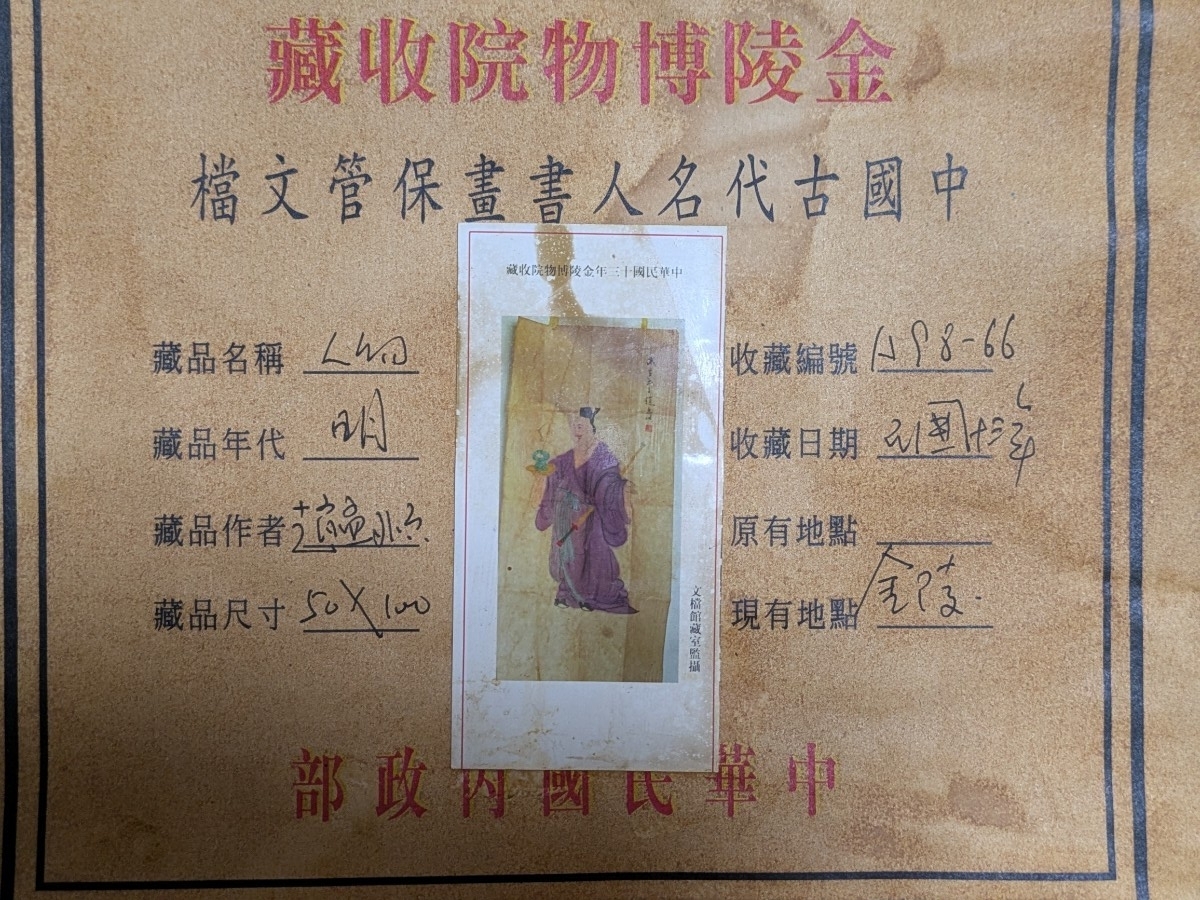 金陵博物院收藏
中國古代名人書畫保管文檔
中華民國十三年金陵博物院收藏
藏品名稱 人物
藏品年代 明
藏品作者
藏品尺寸 50X100
收藏編號
收藏日期 民國十三年
原有地點
現有地點 金陵
文檔館藏室監攝
中華民國內政部